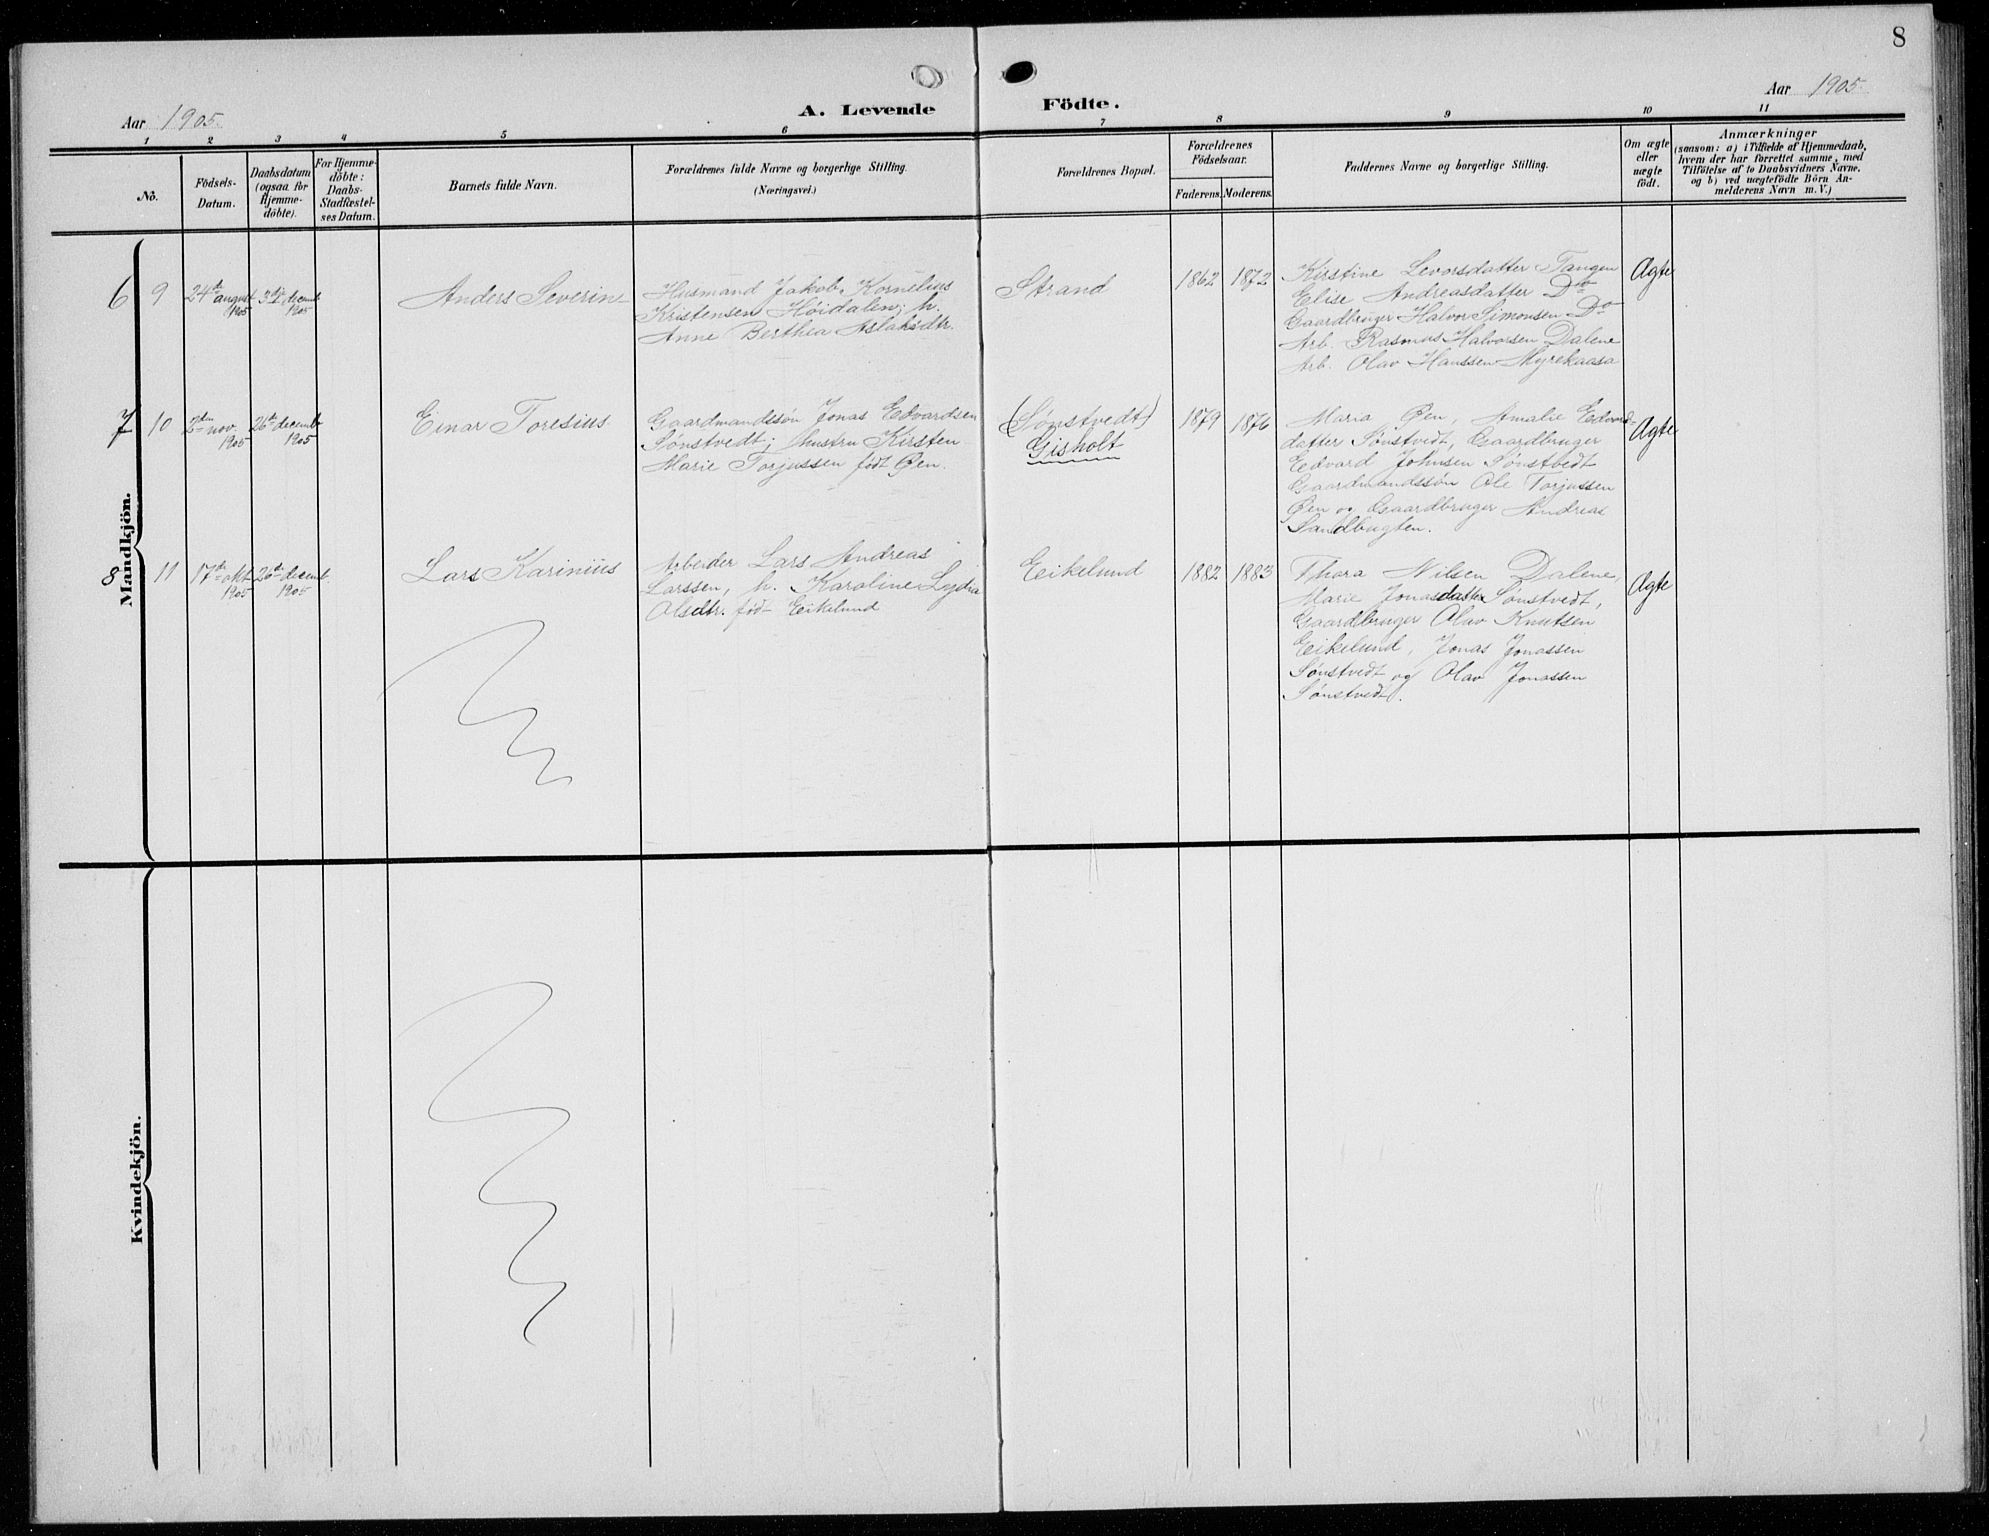 8
Aar 1905.
A. Levende Födte.
Aar 1905.
1 2 3 4 5 6 7 8 9 10 11
No.
Födsels-
Datum.
Daabsdatum
(ogsaa for
Hjemme-
döbte).
For Hjemme-
döbte:
Daabs-
Stadfæstel-
ses Datum.
Barnets fulde Navn.
Forældrenes fulde Navne og borgerlige Stilling.
(Næringsvei.)
Forældrenes Bopæl.
Forældrenes
Födselsaar.
Faderens. Moderens.
Faddernes Navne og borgerlige Stilling.
Om ægte
eller
uægte
födt.
Anmærkninger
(saasom: a) i Tilfælde af Hjemmedaab,
hvem der har forrettet samme, med
Tilföielse af to Daabsvidners Navne,
og b) ved uægtefödte Börn An-
melderens Navn m. V.)
Mandkjön.
6 9
24de august
1905
3die decemb.
1905
Anders Severin
Husmand Jakob Kornelius
Kristensen Høidalen; h.
Anne Berthea Aslaksdtr.
Strand
1862 1872
Kirstine Levorsdatter Tangen
Elise Andreasdatter Do
Gaardbruger Halvor Simonsen Do
Arb. Rasmus Halvorsen Dalene
Arb. Olav Hanssen Myrekaasa
Ægte
7 10
2den nov.
1905
26de decemb
1905
Einar Toresius
Gaardmandssøn Jonas Edvardsen
Sønstvedt; hustru Kirsten
Marie Torjussen født Øen.
(Sønstvedt)
Gisholt
1879 1876
Maria Øen, Amalie Edvards-
datter Sønstvedt, Gaardbruger
Edvard Johnsen Sønstvedt
Gaardmandssøn Ole Torjussen
Øen og Gaardbruger Andreas
Sandbugten.
Ægte
8 11
17de okt.
1905
26de decemb.
1905
Lars Karinius
Arbeider Lars Andreas
Larssen, h. Karoline Lydia
Olsdtr. født Eikelund
Eikelund
1882 1883
Thora Nilsen Dalene,
Marie Jonasdatter Sønstvedt,
Gaardbruger Olav Knutsen
Eikelund, Jonas Jonassen
Sønstvedt og Olav Jonassen
Sønstvedt.
Ægte
Kvindekjön.